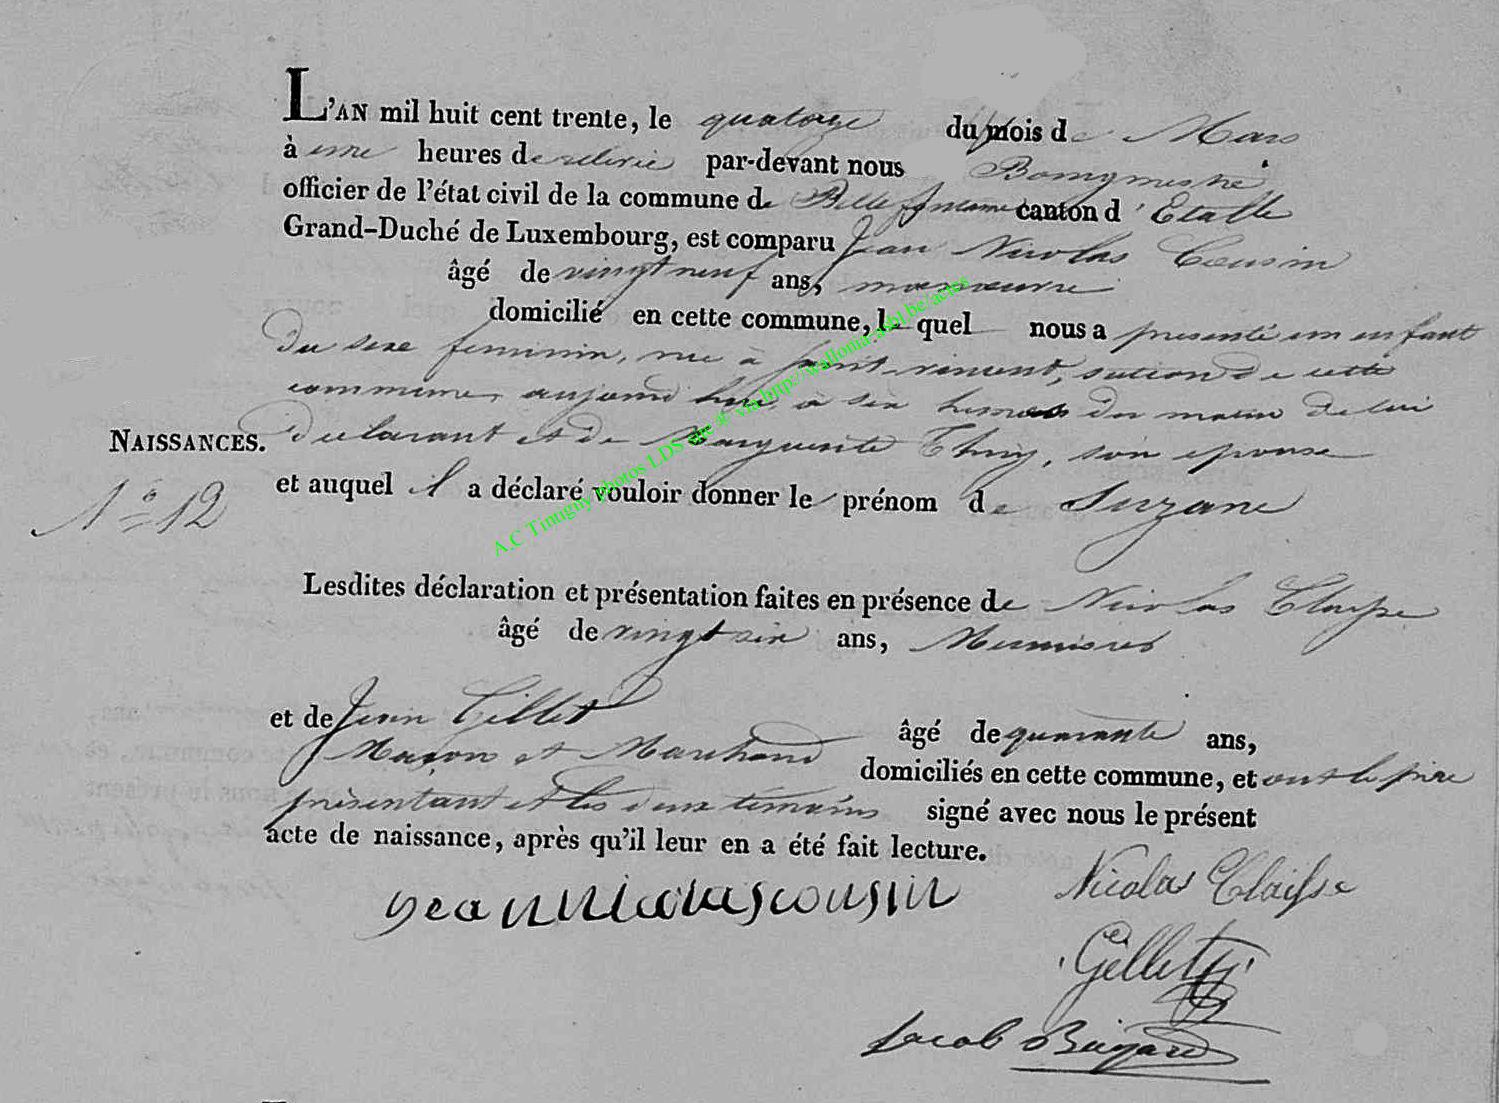 L'AN mil huit cent trente, le quatorze du mois de Mars
à une heures de relevée par-devant nous Bourgmestre,
officier de l'état civil de la commune de Bellefontaine canton d'Etalle
Grand-Duché de Luxembourg, est comparu Jean Nicolas Cousin
âgé de vingt neuf ans, manœuvre
domicilié en cette commune, lequel nous a présenté un enfant
du sexe feminin, née à saint-vincent, section de cette
commune, aujourd'hui à six heures du matin de lui
NAISSANCES. declarant et de Marguerite Thiry, son epouse
et auquel il a déclaré vouloir donner le prénom de Suzane
N° 12
Lesdites déclaration et présentation faites en présence de Nicolas Claisse
âgé de vingt six ans, Menuisier
et de Jean Gillet âgé de quarante ans,
Maçon et Marchand domiciliés en cette commune, et ont le père
présentant et les deux témoins signé avec nous le présent
acte de naissance, après qu'il leur en a été fait lecture.
jean nicolas cousin Nicolas Claisse
Gillet
Jacob
A.C Tintigny photos LDS via http://wallonia-asbl.be/actes